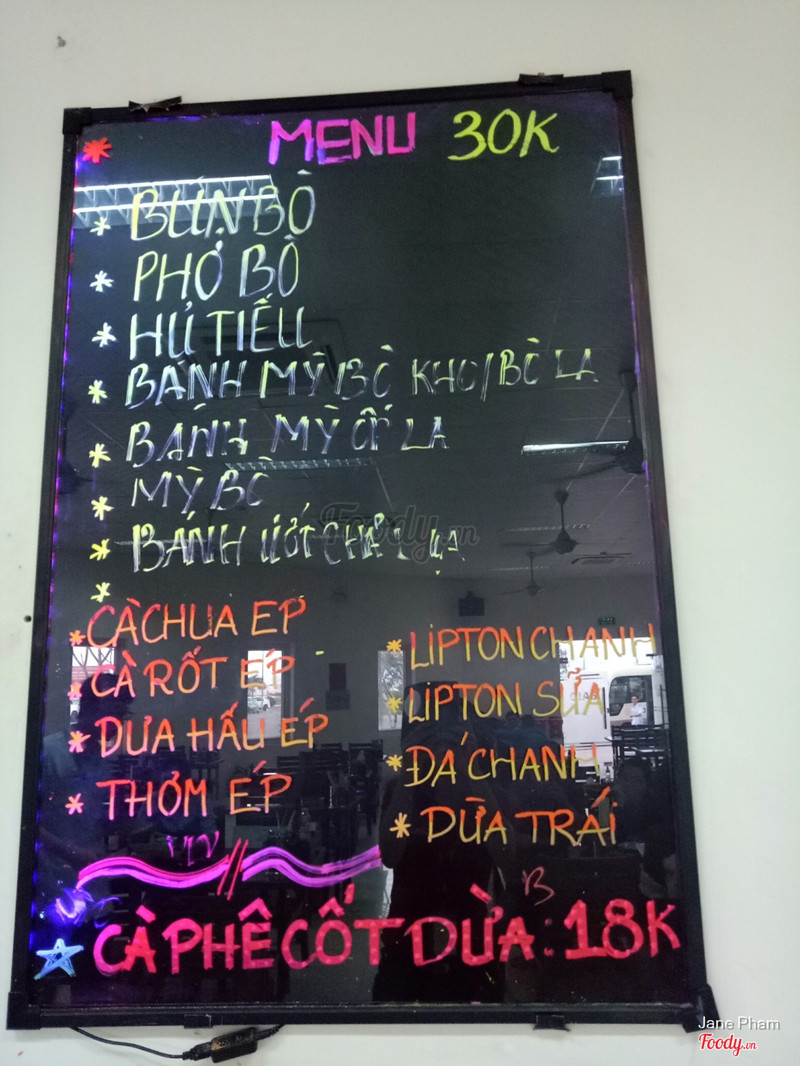 * MENU 30K
* BÚN BÒ
* PHỞ BÒ
* HỦ TIẾU
* BÁNH MỲ BÒ KHO/BÒ LA
* BÁNH MỲ ỐP LA
* MỲ BÒ
* BÁNH ƯỚT LA
*
* CÀ CHUA ÉP
* CÀ RỐT ÉP
* DƯA HẤU ÉP
* THƠM ÉP
* LIPTON CHANH
* LIPTON SỬA
* ĐÁ CHANH
* DỪA TRÁI
CÀ PHÊ CỐT DỪA: 18K
Foody.vn
Jane Pham
Foody.vn